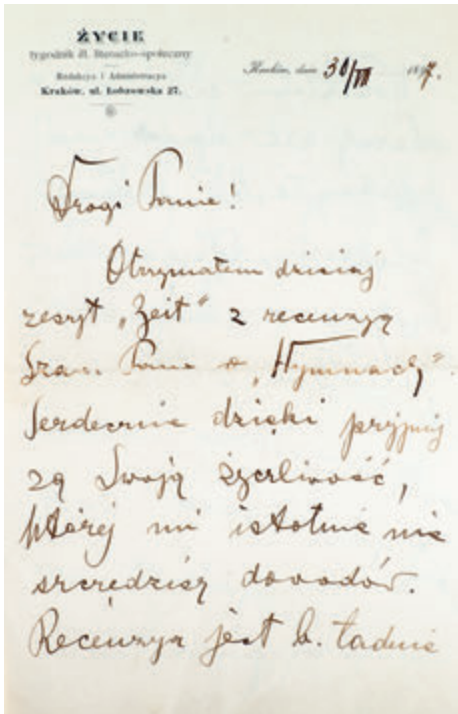 ŻYCIE
tygodnik il. literacko-społeczny
Redakcya i Administracya
Kraków, ul. Łobzowska 27.
Kraków, dnia 30/VII 1897.
Drogi Panie!
Otrzymałem dzisiaj
zeszyt „Zeit” z recenzyą
Szan. Pana o „Hymnach”.
Serdecznie dzięki przyjmij
za Swoją życzliwość,
której mi istotnie nie
szczędzisz dowodów.
Recenzya jest b. ładnie